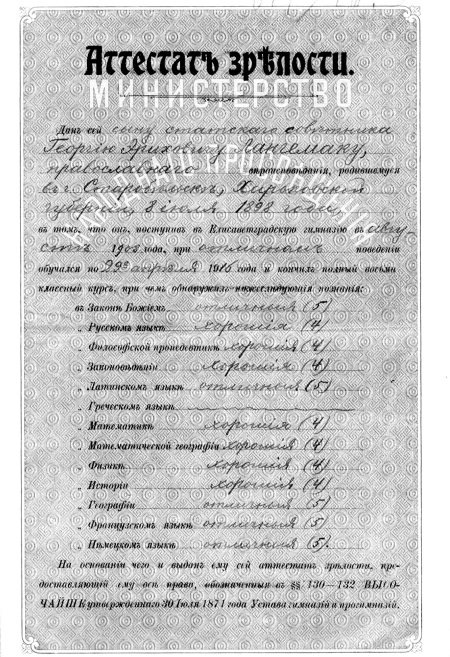 Аттестатъ зрѣлости.
МИНИСТЕРСТВО
НАРОДНАГО ПРОСВѢЩЕНІЯ
Данъ сей сыну статскаго совѣтника
Георгію Эриховичу Лангемаку,
православнаго вѣроисповѣданія, родившемуся
въ г. Старобѣльскѣ, Харьковской
губерніи, 8 іюля 1898 года,
въ томъ, что онъ, поступивъ въ Елисаветградскую гимназію въ авгу-
стѣ 1908 года, при отличномъ поведеніи
обучался по 29е апрѣля 1916 года и кончилъ полный восьми
классный курсъ, при чемъ обнаружилъ нижеслѣдующія познанія:
въ Законѣ Божіемъ отличныя (5)
„ Русскомъ языкѣ хорошія (4)
„ Философской пропедевтикѣ хорошія (4)
„ Законовѣдѣніи хорошія (4)
„ Латинскомъ языкѣ отличныя (5)
„ Греческомъ языкѣ
„ Математикѣ хорошія (4)
„ Математической географіи хорошія (4)
„ Физикѣ хорошія (4)
„ Исторіи хорошія (4)
„ Географіи отличныя (5)
„ Французскомъ языкѣ отличныя (5)
„ Нѣмецкомъ языкѣ отличныя (5).
На основаніи чего и выданъ ему сей аттестатъ зрѣлости, пре-
доставляющій ему всѣ права, обозначенныя въ §§ 130—132 ВЫСО-
ЧАЙШЕ утвержденнаго 30 Іюля 1871 года Устава гимназій и прогимназій.